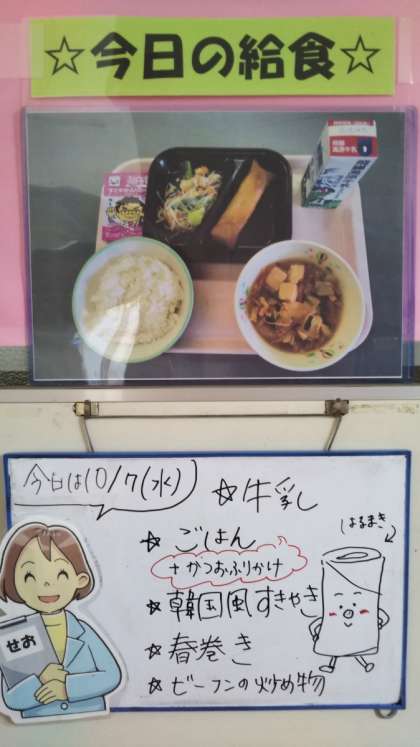 ☆今日の給食☆
今日は10/7(水)
☆牛乳
☆ごはん
+かつおふりかけ
☆韓国風すきやき
☆春巻き
☆ビーフンの炒め物
はるまき
せお